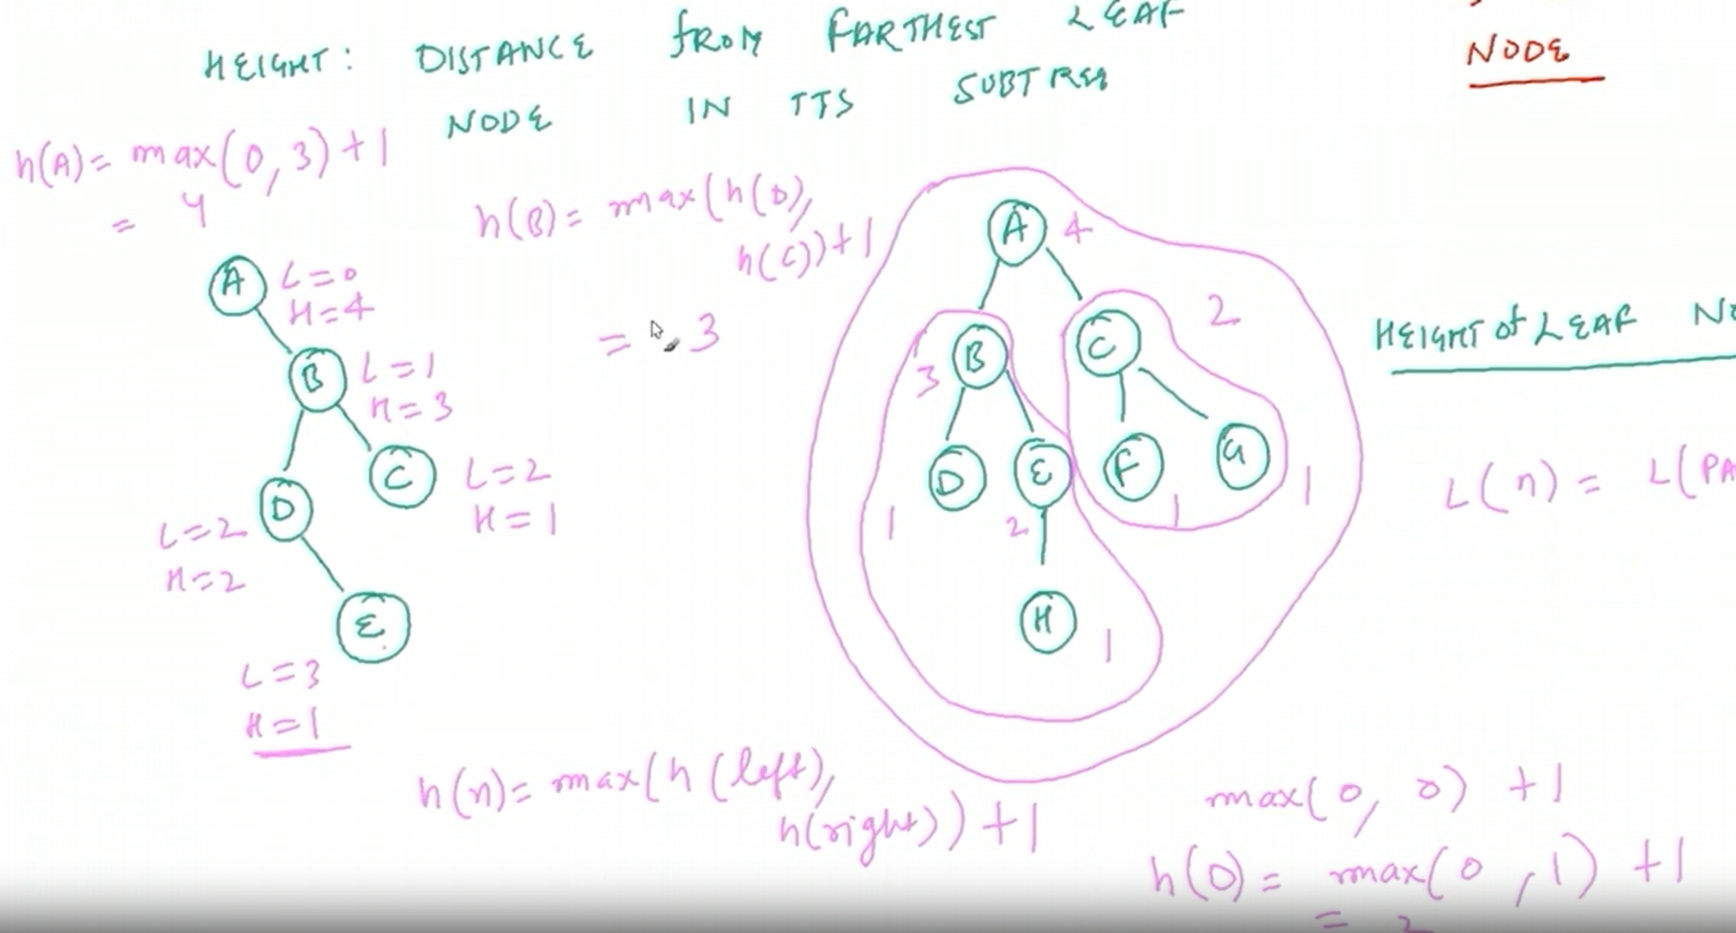 HEIGHT: DISTANCE FROM FARTHEST LEAF
NODE IN ITS SUBTREE
NODE
h(A)= max(0, 3)+1
= 4
h(B)= max(h(D),
h(C))+1
= 3
A L=0
H=4
B L=1
H=3
C L=2
H=1
D
L=2
H=2
E
L=3
H=1
A 4
B
3
C
2
D
1
E
2
F
1
G
1
H
1
HEIGHT of LEAF NO
L(n) = L(PA
h(n)= max(h(left),
h(right))+1
max(0, 0) +1
h(D)= max(0, 1) +1
= 2